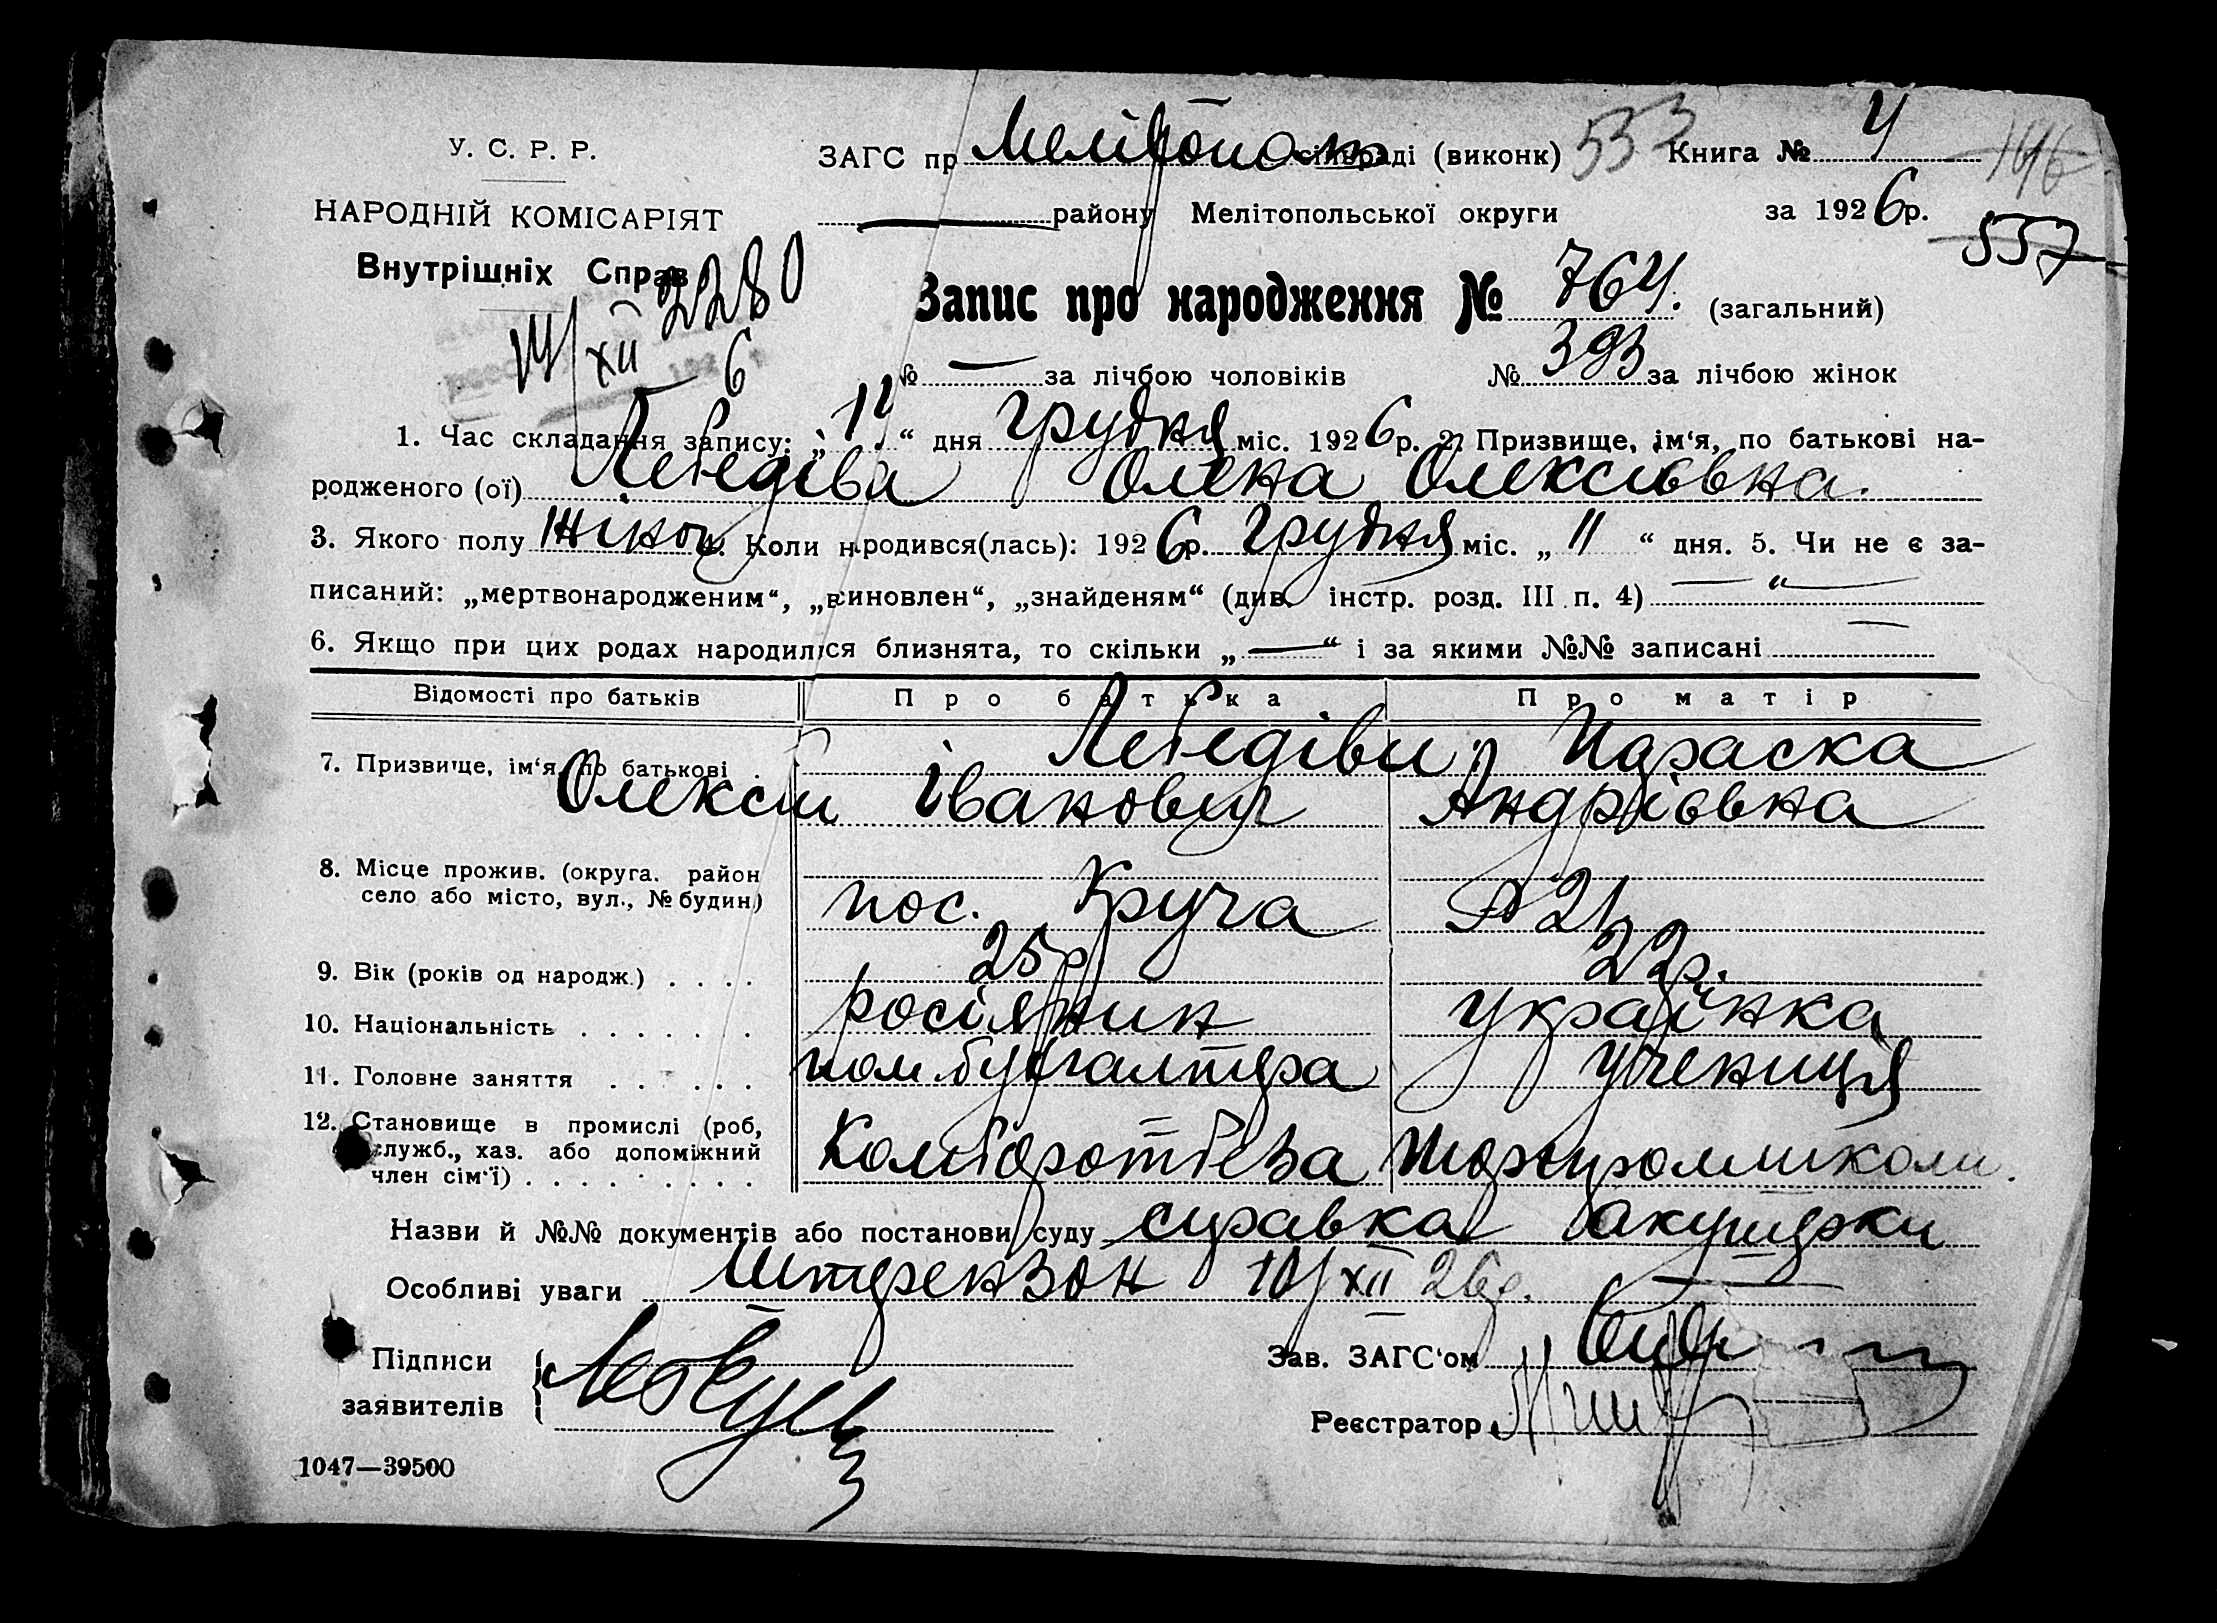 У. С. Р. Р.
НАРОДНІЙ КОМІСАРІЯТ
Внутрішніх Справ
2280
14/XII 6
ЗАГС пр Мелітополь сільраді (виконк) 553 Книга № 4
— району Мелітопольської округи за 1926 р.
557
Запис про народження № 764. (загальний)
№ — за лічбою чоловіків № 393 за лічбою жінок
1. Час складання запису: „14“ дня Грудня міс. 1926 р. 2. Призвище, ім‘я, по батькові на-
родженого (ої) Лебедіва Олена Олексієвна.
3. Якого полу Жіноч. 4. Коли народився(лась): 1926 р. Грудня міс. „11“ дня. 5. Чи не є за-
писаний: „мертвонародженим“, „всиновлен“, „знайденям“ (див. інстр. розд. III п. 4) — “ —
6. Якщо при цих родах народилися близнята, то скільки „—“ і за якими №№ записані —
Відомості про батьків Про батька Про матір
7. Призвище, ім‘я, по батькові Лебедіви Параска
Олексій Іванович Андрієвна
8. Місце прожив. (округа. район
село або місто, вул., № будин) пос. Круча № 21
9. Вік (років од народж.) . . . . 25 р. 22 р.
10. Національність . . . . . . росіянин українка
11. Головне заняття . . . . . . пом. бухгалтера учениця
12. Становище в промислі (роб,
служб., хаз. або допоміжний
член сім‘ї) . . . . . . . . . Комборотбеза Торгпромшколи.
Назви й №№ документів або постанови суду справка акушерки
Особливі уваги Штерензон 14/XII 26 р.
Підписи
заявителів
Зав. ЗАГС‘ом
Реєстратор
1047—39500